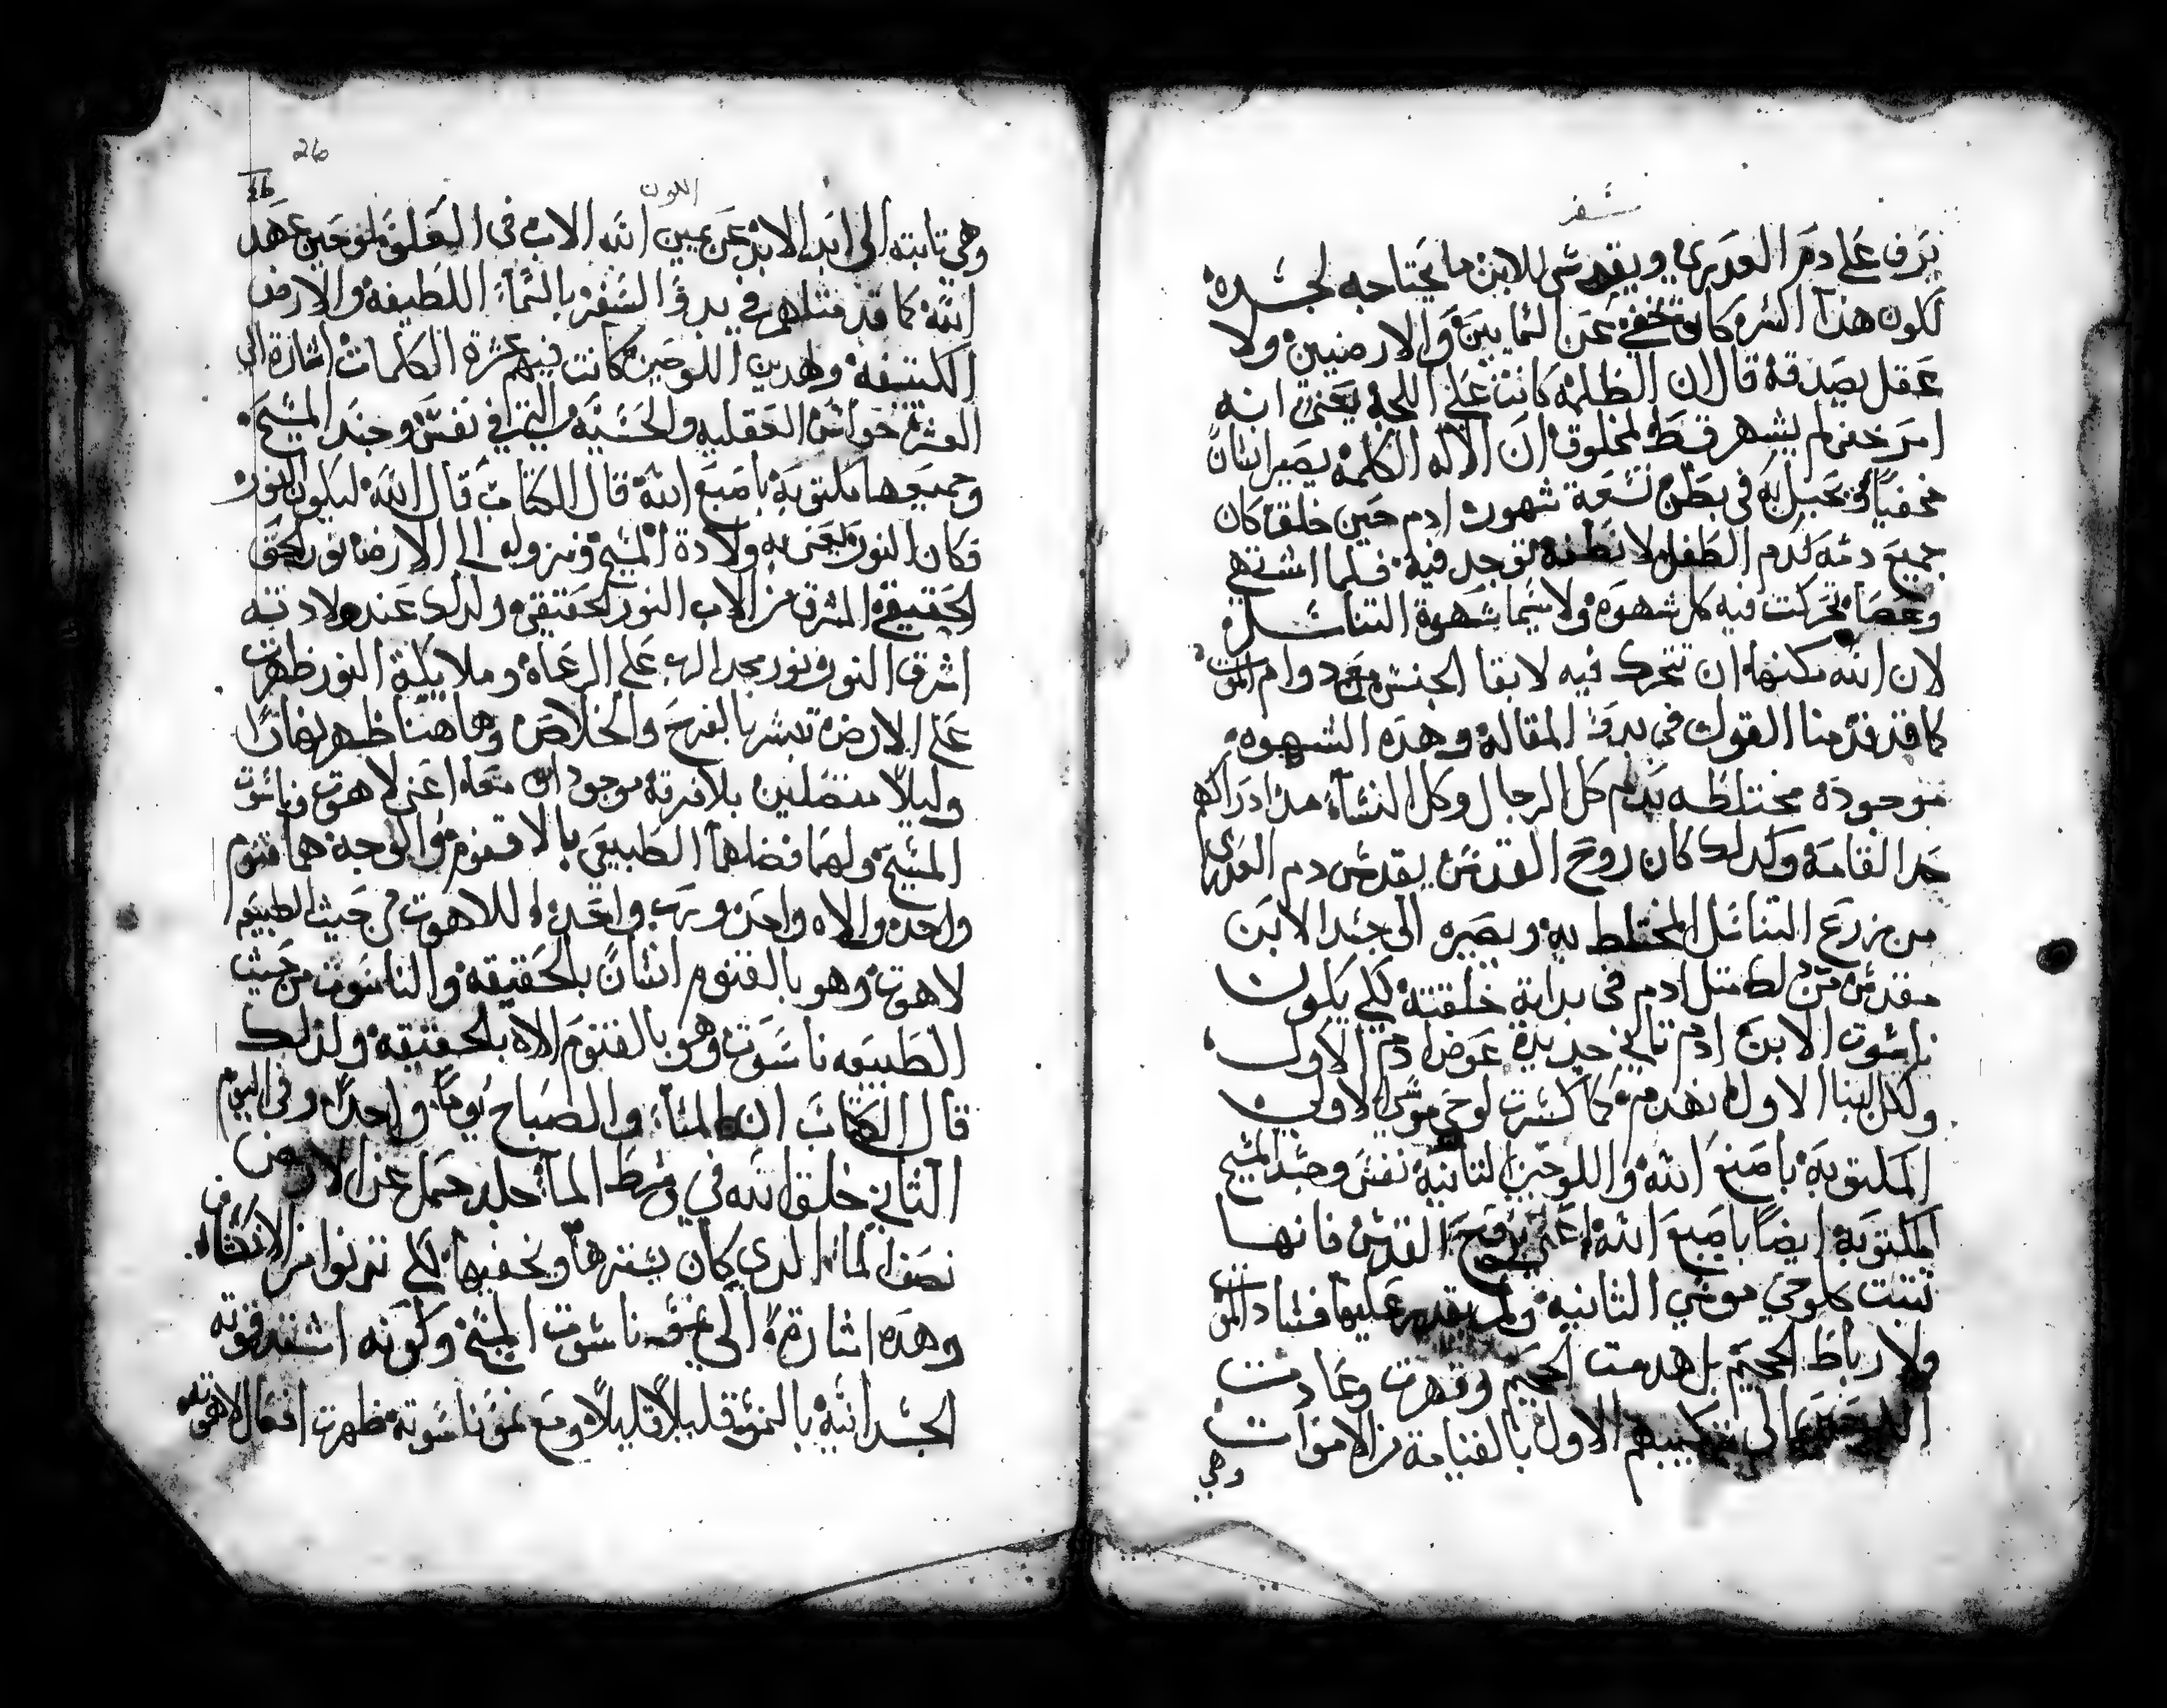 سفر
يرف على دم العدري ويقدس للابن ما يحتاجه لجسده
لكون هذا السر كان مخفي عن السمايين والارضيين ولا
عقل يصدقه قال ان الظلمه كانت على اللجه يعني انه
امر خفي لم يشهر قط لمخلوق ان الاله الكلمه يصير انسان
مخفيا ويحبل به في بطن تسعة شهور ادم حين خلق كان
جميع دمه كدم الطفل لا نطفه توجد فيه فلما اشتهى
وعصا تحركت فيه كل شهوه ولا سيما شهوة التناسل
لان الله مكنها ان تتحرك فيه لابقا الجنس مع دوام الموت
كما قد قدمنا القول في بدو المقاله وهذه الشهوه
موجوده مختلطه بدم كل الرجال وكل النساء مند ادراكهم
حد القامه وكدلك كان روح القدس يقدس دم العدري
من زرع التناسل المختلط به ويصيره الى جسد الابن
مقدس من لك متل ادم في بداية خلقته لكي يكون
ناسوت الابن ادم تاني جديد عوض ادم الاول
ولكن البنا الاول انهدم كما كسرت لوحي موسى الاولى
المكتوبه باصبع الله واللوحين التانيه نفس وجسد المسيح
المكتوبه ايضا باصبع الله اعني روح القدس فانها
تبتت كلوحي موسي الثانيه ولم يقدر عليها فساد الموت
ولا رباط الجحيم بل هدمت الجحيم وقهرت وعادت
اللوحين الى تركيبهم الاول بالقيامة من الاموات
وهي
26
اللون
وهي تابته الى ابد الابد عن يمين الله الاب في العلو لوحين عهد
الله كما قد مثلهم في بدو السفر بالسماء اللطيفه والارض
الكتيفه ولهدين اللوحين كانت فيهم عشرة الكلمات اشارة الى
العشرة حواس العقليه والحسيه التي في نفس وجسد المسيح
وجميعها مكتوبه باصبع الله قال الكتاب قال الله ليكون النور
فكان النور يعني به ولادة المسيح ونزوله الى الارض نور الحق
الحقيقي المشرق من الاب النور الحقيقي ولدلك عند ولادته
اشرق النور ونور مجد الرب على الرعاه وملايكة النور ظهرت
على الارض تبشر بالفرح والخلاص وهاهنا ظهر نهارا
وليلا متصلين بلا فرقه موجودان معا اعني لاهوت وناسوت
المسيح ولهما فضلهما الطبيعي بالاقنوم والوجه هما قنوم
واحد والاه واحد ورب واحد اللاهوت من حيث الطبيعه
لاهوت وهو بالقنوم انسان بالحقيقه والناسوت من حيث
الطبيعه ناسوت وهو بالقنوم الاه بالحقيقه ولدلك
قال الكتاب ان المسا والصباح يوما واحدا وفي اليوم
التاني خلق الله في وسط الما جلد حمل عن الارض
نصف الما الدي كان يسترها ويخفيها لكي تدنوا من الانكشاف
وهده اشارة الى نمو ناسوت المسيح وكونه اشتد قوته
الجسدانيه بالنمو قليلا قليلا ومع نمو ناسوته ظهرت افعال لاهوته